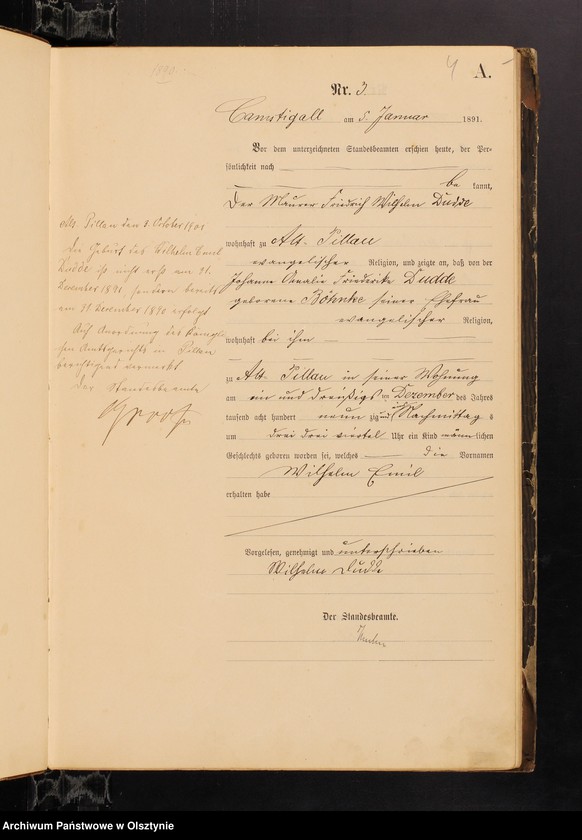 1890.
4
A.
Nr. 3.
Camstigall am 5. Januar 1891.
Vor dem unterzeichneten Standesbeamten erschien heute, der Per-
sönlichkeit nach
be kannt,
der Maurer Friedrich Wilhelm Dudde
wohnhaft zu Alt-Pillau
evangelischer Religion, und zeigte an, daß von der
Johanne Amalie Friederike Dudde
geborene Böhnke seiner Ehefrau
evangelischer Religion,
wohnhaft bei ihm
zu Alt-Pillau in seiner Wohnung
am ein und dreißigsten Dezember des Jahres
tausend acht hundert neun zig und Nachmittag s
um drei drei viertel Uhr ein Kind männ lichen
Geschlechts geboren worden sei, welches die Vornamen
Wilhelm Emil
erhalten habe
Vorgelesen, genehmigt und unterschrieben
Wilhelm Dudde
Der Standesbeamte.
Alt-Pillau den 3. October 1901
Die Geburt des Wilhelm Emil
Dudde ist nicht erst am 31.
Dezember 1891, sondern bereits
am 31 Dezember 1890 erfolgt
Auf Anordnung des Königli-
chen Amtsgerichts in Pillau
berichtigend vermerkt
Der Standesbeamte
Archiwum Państwowe w Olsztynie